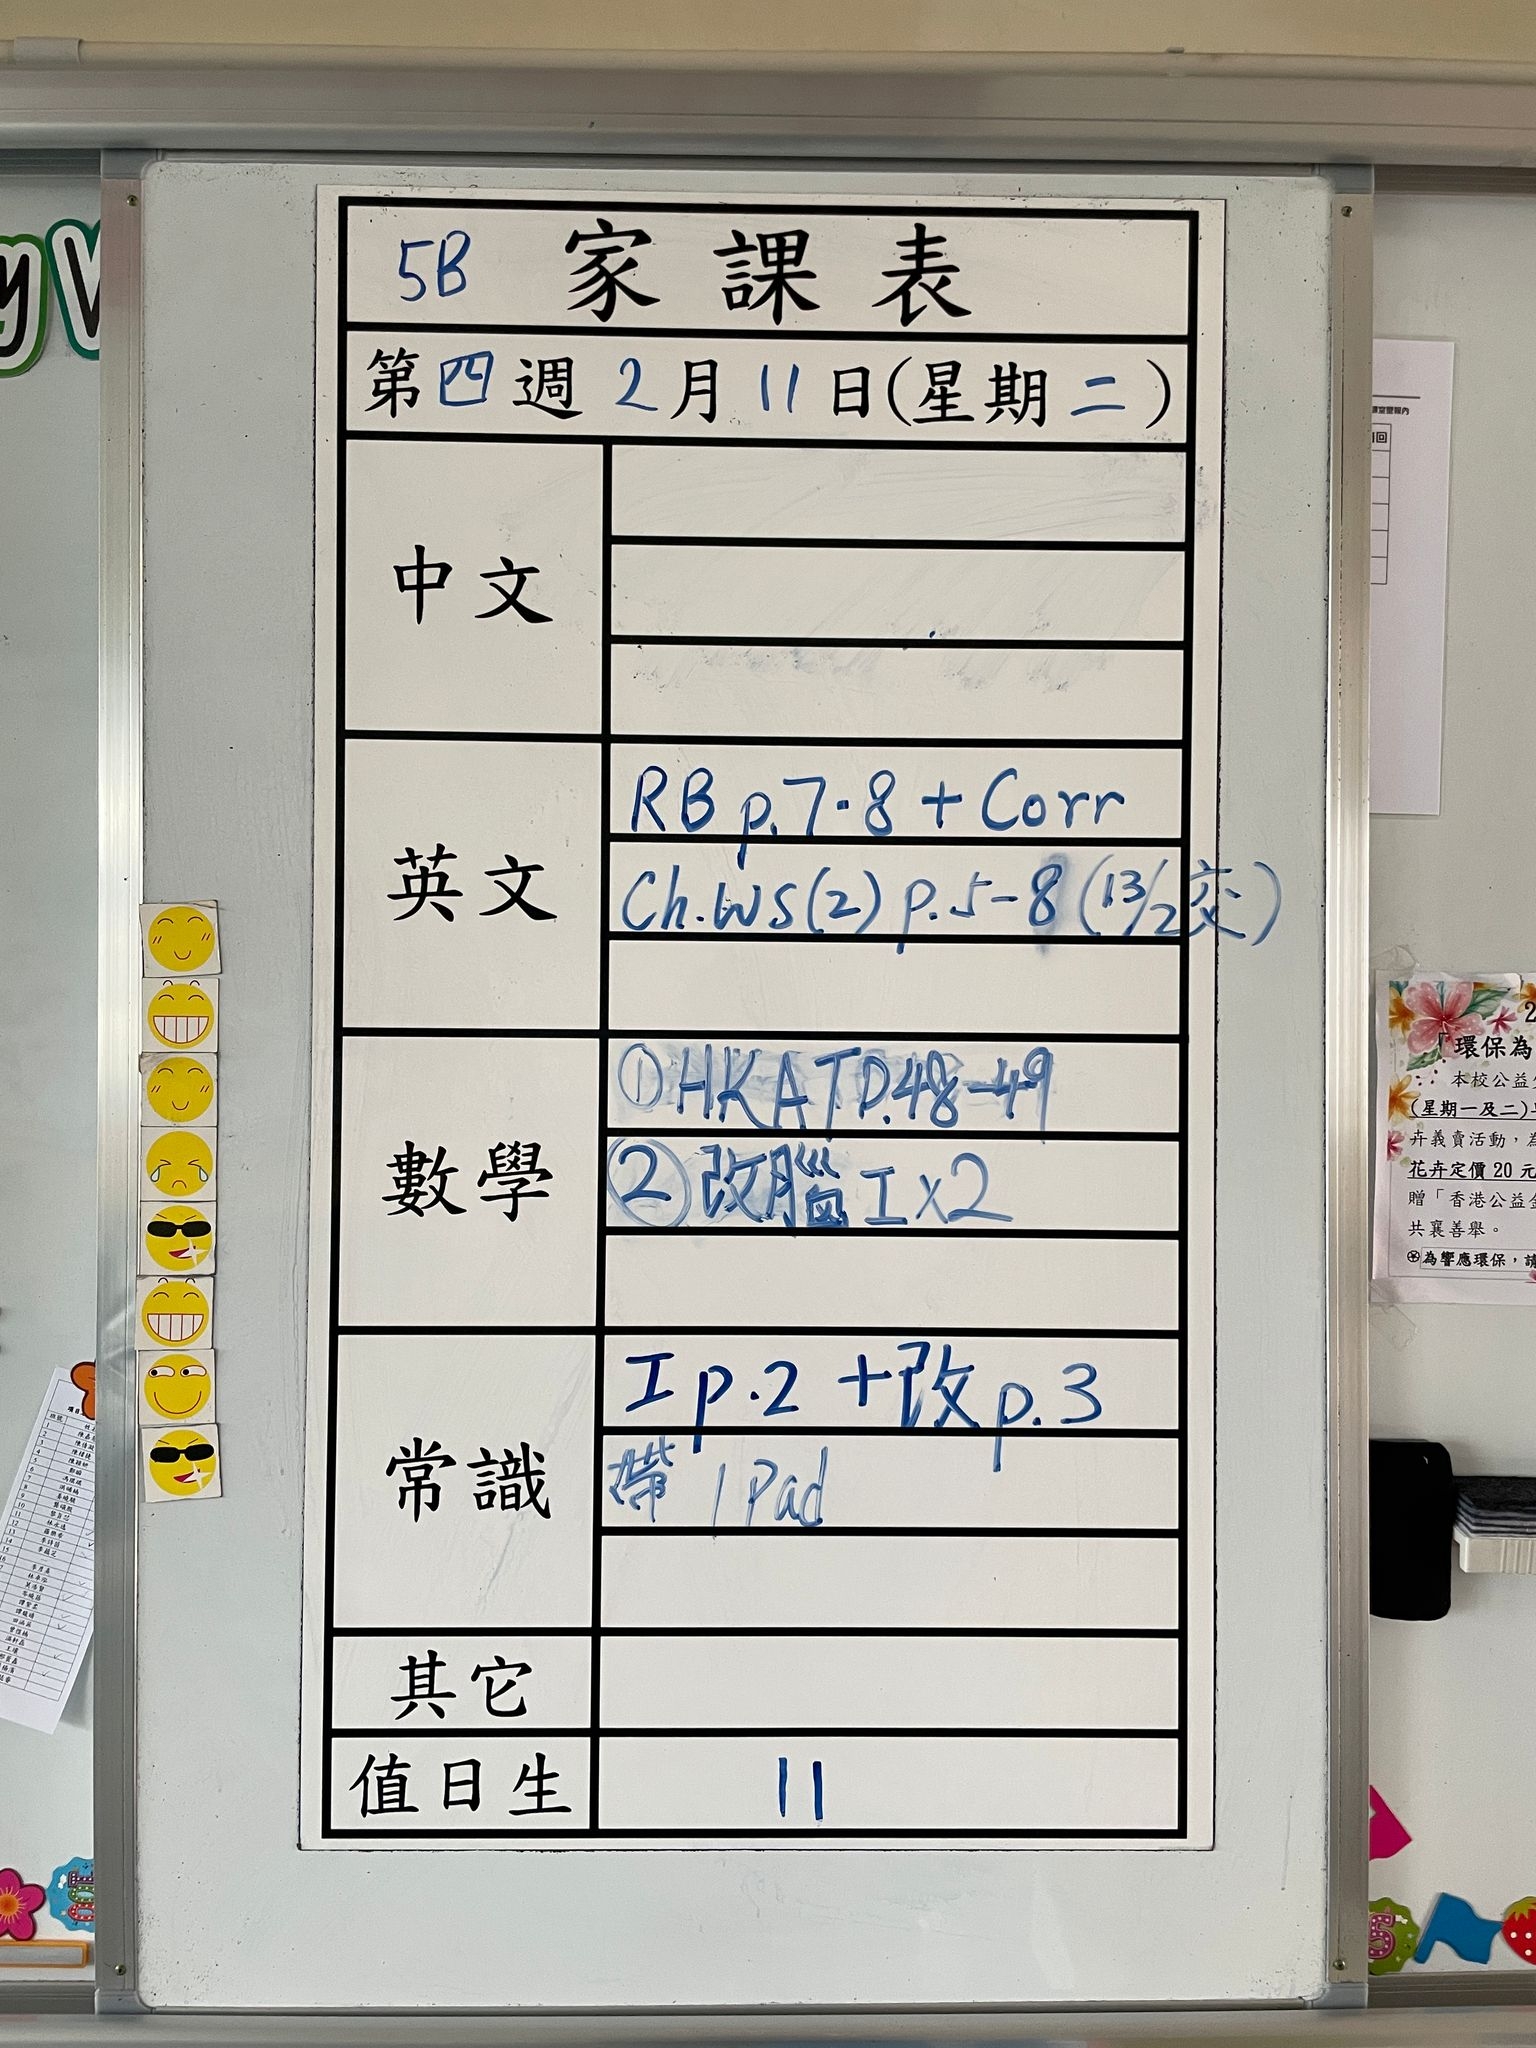 5B 家課表
第四週2月11日(星期二)
中文
英文
RB p.7-8 + Corr
Ch.WS(2) p.5-8 (13/2交)
數學
①HKAT P.48-49
②改腦I x2
常識
I p.2 + 改 p.3
帶 iPad
其它
值日生
11
環保為
本校公益
(星期一及二)
卉義賣活動，為
花卉定價20元
贈「香港公益金
共襄善舉。
為響應環保，請